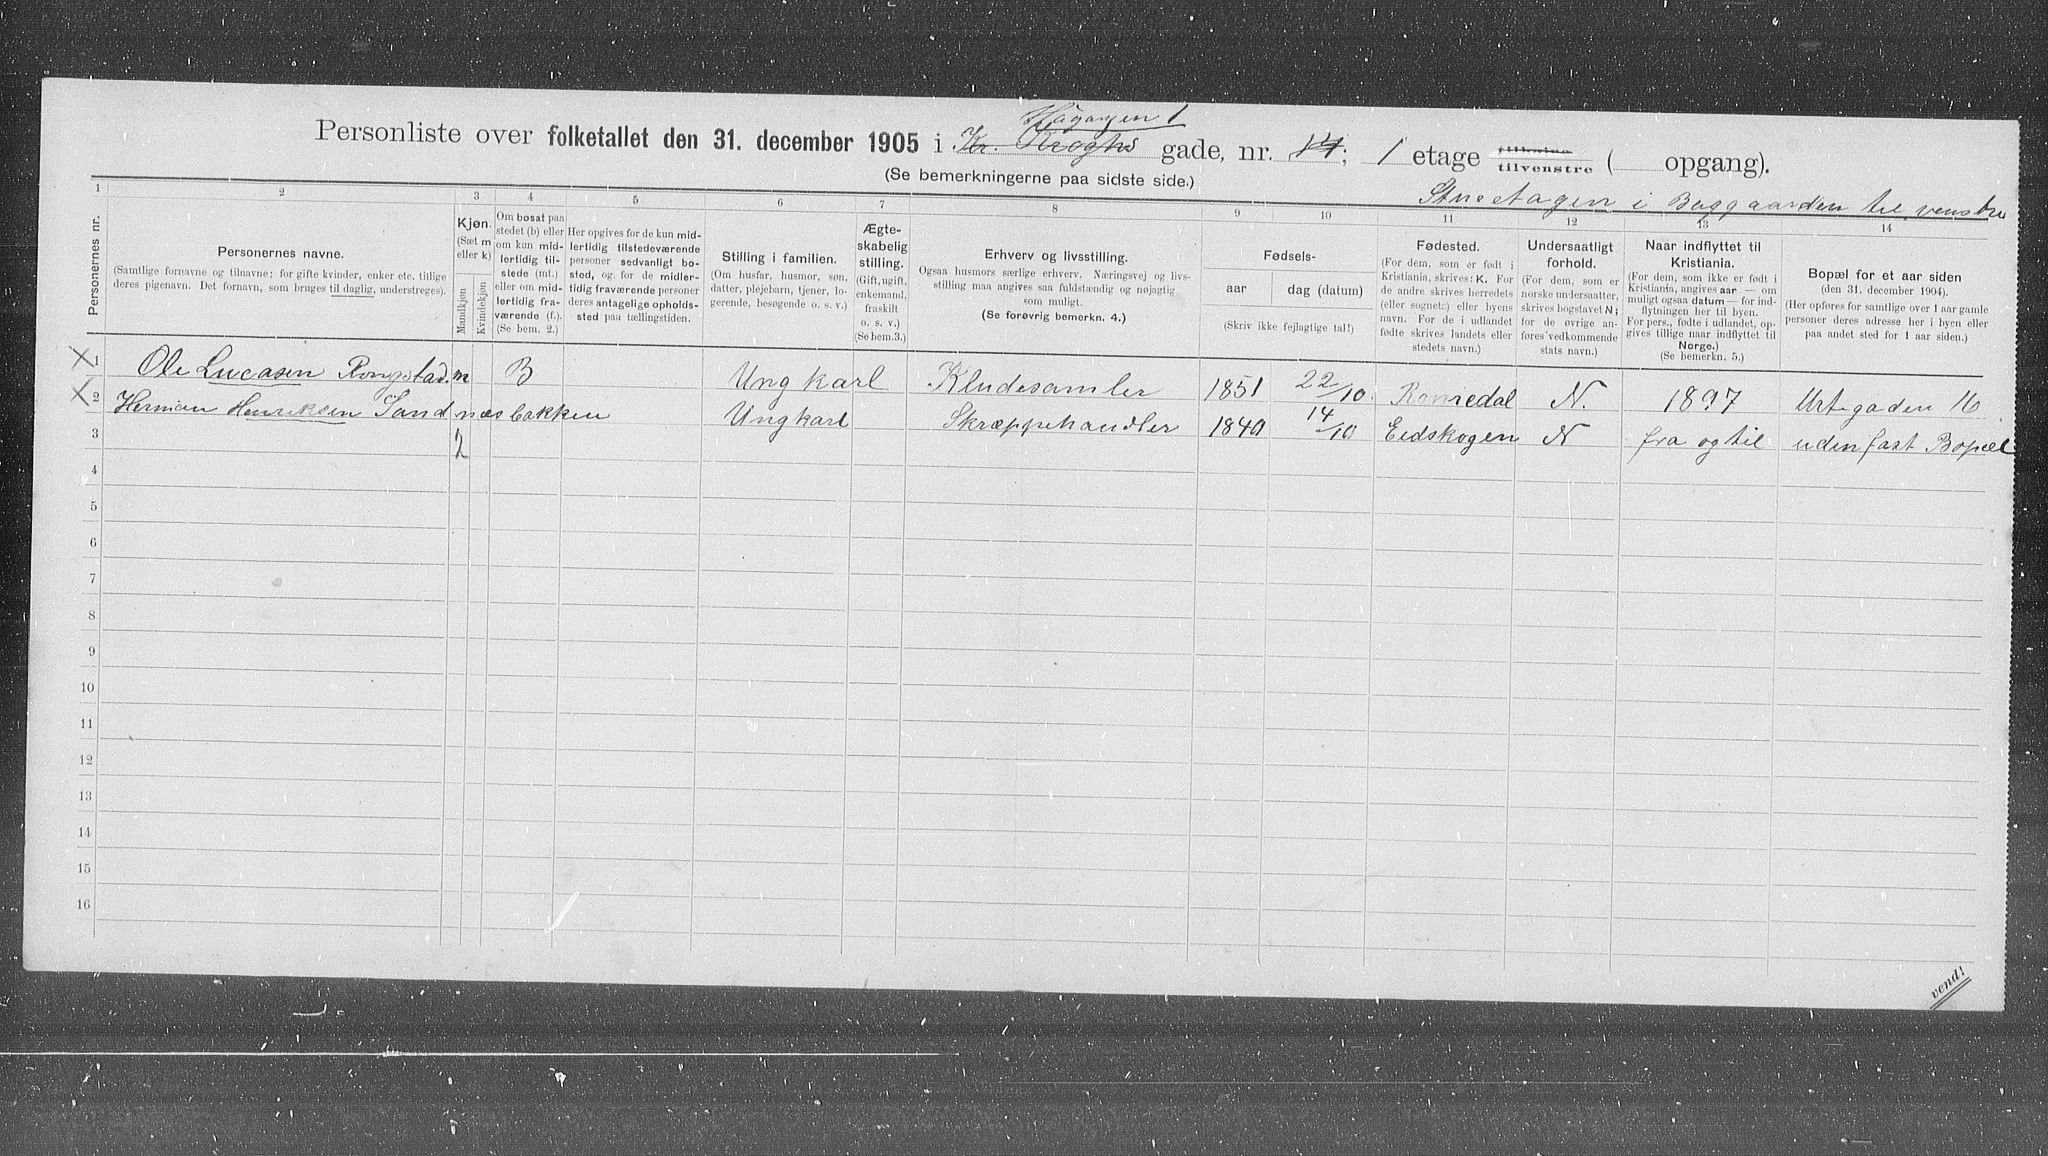 Personliste over folketallet den 31. december 1905 i Kr. Kroghs gade, nr. 14; 1 etage tilhøire tilvenstre ( opgang).
(Se bemerkningerne paa sidste side.)
Stueetagen i Baggaarden til venstre
1 2 3 4 5 6 7 8 9 10 11 12 13 14
Personernes nr.
Personernes navne.
(Samtlige fornavne og tilnavne; for gifte kvinder, enker etc. tillige
deres pigenavn. Det fornavn, som bruges til daglig, understreges).
Kjøn.
(Sæt m
eller k)
Mandkjøn
Kvindekjøn
Om bosat paa
stedet (b) eller
om kun mid-
lertidig til-
stede (mt.)
eller om mid-
lertidig fra-
værende (f.).
(Se bem. 2.)
Her opgives for de kun mid-
lertidig tilstedeværende
personer sedvanligt bo-
sted, og for de midler-
tidig fraværende personer
deres antagelige opholds-
sted paa tællingstiden.
Stilling i familien.
(Om husfar, husmor, søn,
datter, plejebarn, tjener, lo-
gerende, besøgende o. s. v.)
Ægte-
skabelig
stilling.
(Gift, ugift,
enkemand,
fraskilt
o. s. v.)
(Se bem.3.)
Erhverv og livsstilling.
Ogsaa husmors særlige erhverv. Næringsvej og livs-
stilling maa angives saa fuldstændig og nøjagtig
som muligt.
(Se forøvrig bemerkn. 4.)
Fødsels-
aar
dag (datum)
(Skriv ikke fejlagtige tal!)
Fødested.
(For dem, som er født i
Kristiania, skrives: K. For
de andre skrives herredets
(eller sognets) eller byens
navn. For de i udlandet
fødte skrives landets eller
stedets navn.)
Undersaatligt
forhold.
(For dem, som er
norske undersaatter,
skrives bogstavet N;
for de øvrige an-
føres vedkommende
stats navn.)
Naar indflyttet til
Kristiania.
(For dem, som ikke er født i
Kristiania, angives aar — om
muligt ogsaa datum — for ind-
flytningen her til byen.
For pers., født e i udlandet, op-
gives tillige naar indflyttet til
Norge.)
(Se bemerkn. 5.)
Bopæl for et aar siden
(den 31. december 1904).
(Her opføres for samtlige over 1 aar gamle
personer deres adresse her i byen eller
paa andet sted for 1 aar siden.)
1 Ole Lucasen Rongstad m B Ung karl Kludesamler 1851 22/10 Romedal N. 1897 Urtegaden 16
2 Herman Henriksen Sandnæsbakken Ungkarl Skræppehandler 1840 14/10 Eidskogen N fra og til uden fast Bopæl
3 2
4
5
6
7
8
9
10
11
12
13
14
15
16
vend!